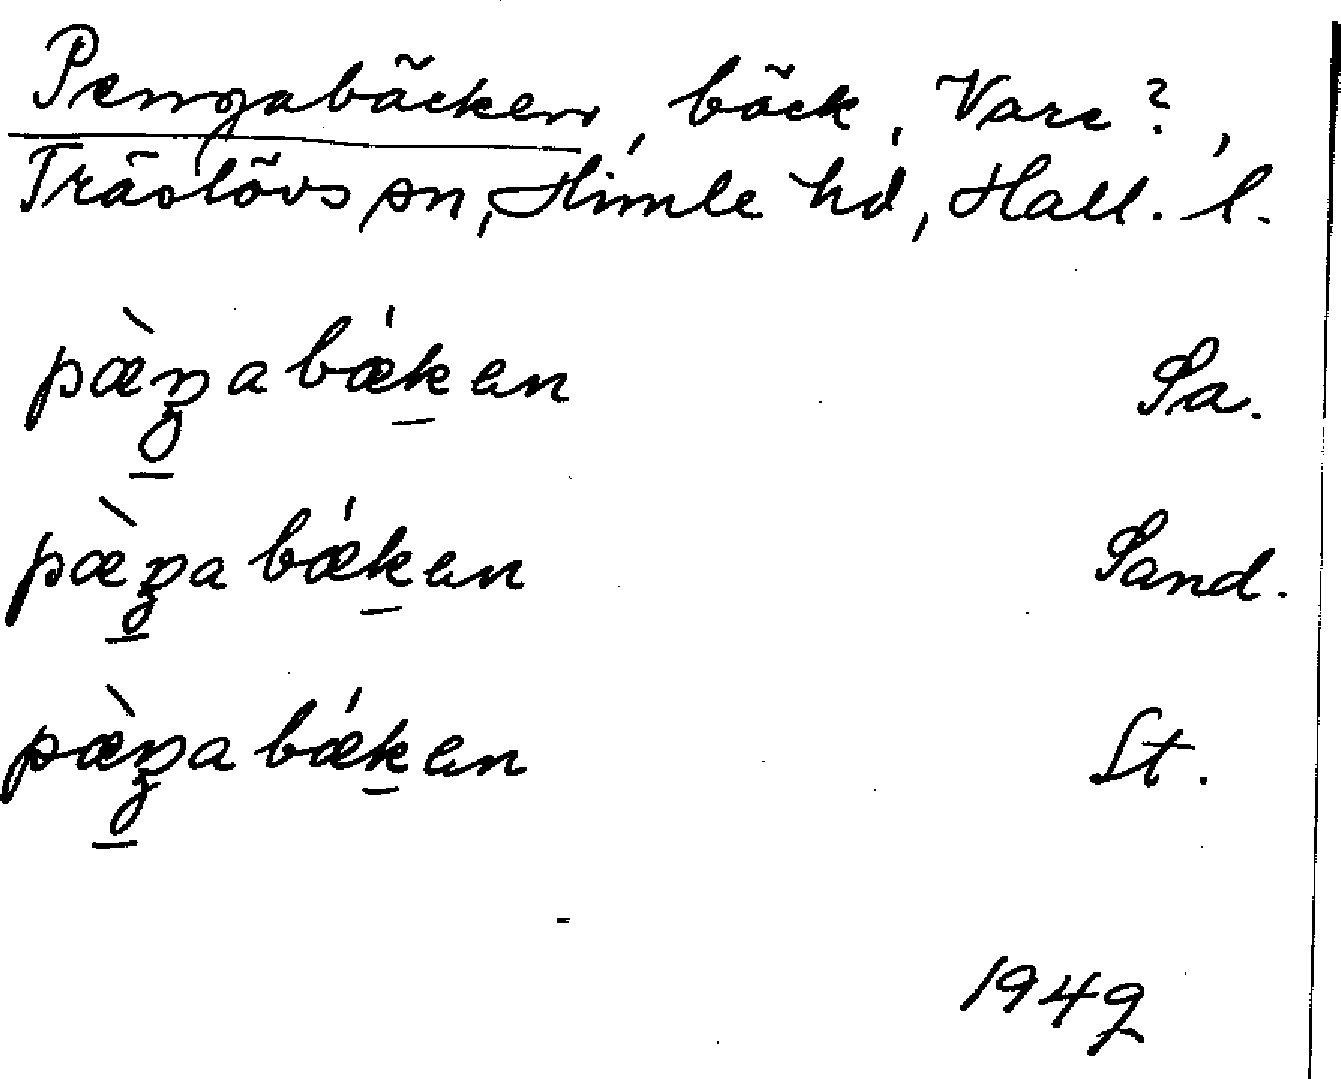 Pengabäcken, bäck, Vare?,
Träslövs sn, Himle hd, Hall. l.
pæ̀ŋabǽken Sa.
pæ̀ŋabǽken Sand.
pæ̀ŋabǽken St.
1942